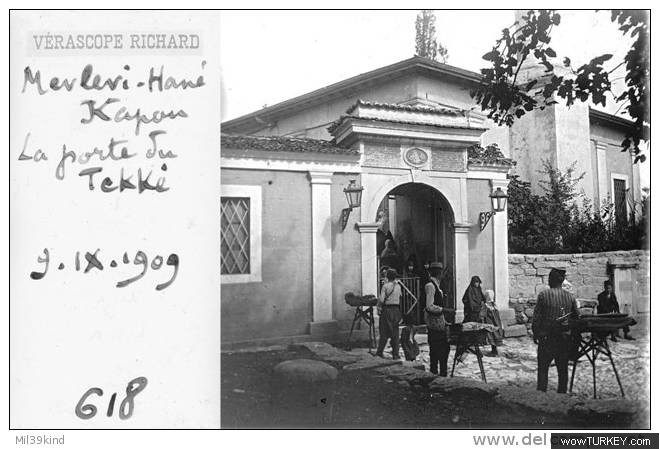 VÉRASCOPE RICHARD
Mevlevi-Hané
Kapou
La porte du
Tekké
9.IX.1909
618
Mil39kind
delcampe.net
wowTURKEY.com